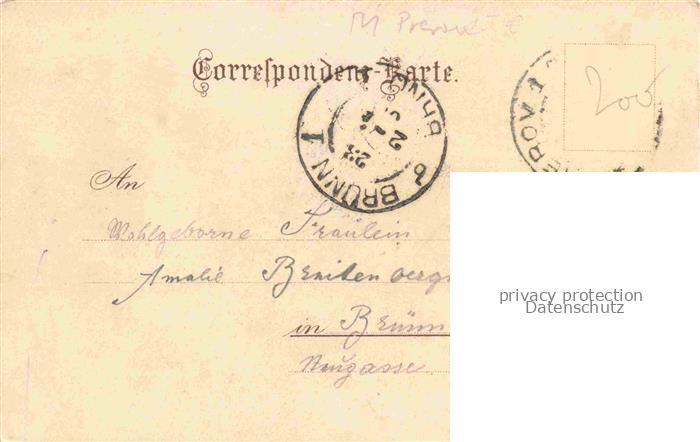 Correspondenz-Karte.
BRÜNN 1
BRNO
23
EROV 1
200
An
Wohlgeborne Fräulein
Amalie Breitenberg
in Brünn
Neugasse
privacy protection
Datenschutz